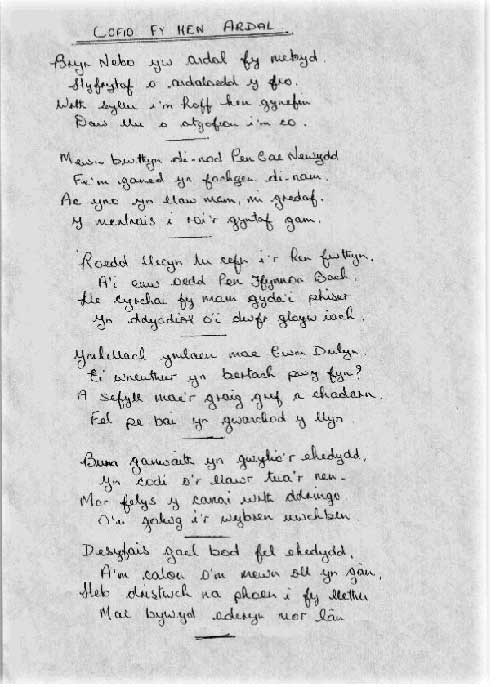 COFIO FY HEN ARDAL
Bryn Nebo yw ardal fy mebyd.
Hyfrytaf o ardaloedd y fro.
Wrth syllu i'm hoff hen gynefin
Daw llu o atgofion i'm co.
Mewn bwthyn di-nod Pen Cae Newydd
Fe'm ganed yn fachgen di-nam.
Ac yno yn llaw mam, mi gredaf.
Y mentrais i roi'r gyntaf gam.
Roedd llecyn tu cefn i'r hen fwthyn.
A'i enw oedd Pen Ffynnon Bach.
Lle cyrchai fy mam gyda'i phiser
Yn ddyddiol o'i dwfr gloyw iach.
Ymhellach ymlaen mae Cwm Dulyn.
Ei wneuthur yn bertach pwy fyn?
A sefyll mae'r graig gref a chadarn.
Fel pe bai yn gwarchod y llyn.
Bum ganwaith yn gwylio'r ehedydd,
Yn codi o'r llawr tua'r nen.
Mor felys y canai wrth ddringo
A'i golwg i'r wybren uwchben.
Desyfais gael bod fel ehedydd,
A'm calon o'm mewn oll yn gân,
Heb dristwch na phoen i fy llethu
Mae bywyd ederyn mor lân